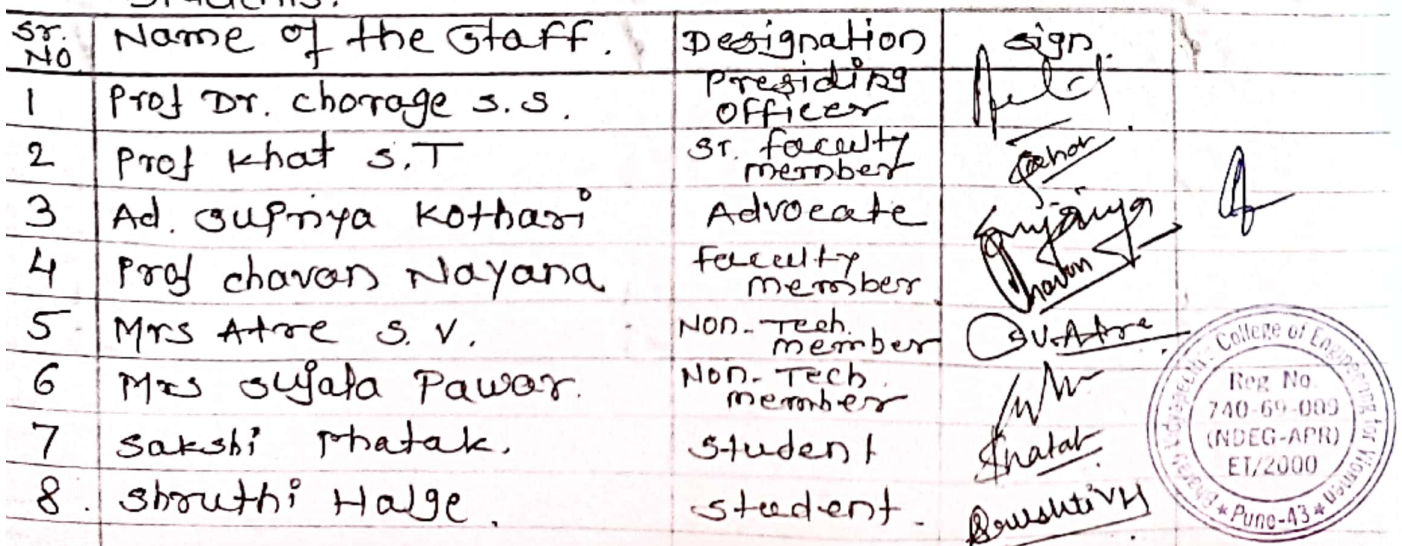 Students.
Sr. NO Name of the Staff. Designation sign.
1 Prof Dr. Chorage S.S. Presiding officer
2 Prof Khat S.T Sr. faculty member
3 Ad. Supriya Kothari Advocate Supriya
4 Prof chavan Nayana faculty member Chavan
5 Mrs Atre S. V. Non-Tech. member SV.Atre
6 Mrs Sujata Pawar. Non-Tech. member
7 Sakshi Phatak. Student Phatak
8. Shruthi Halge. Student.
Bharati Vidyapeeth's College of Engineering for Women
Reg No.
740-69-009
(NDEG-APR)
ET/2000
* Pune-43 *